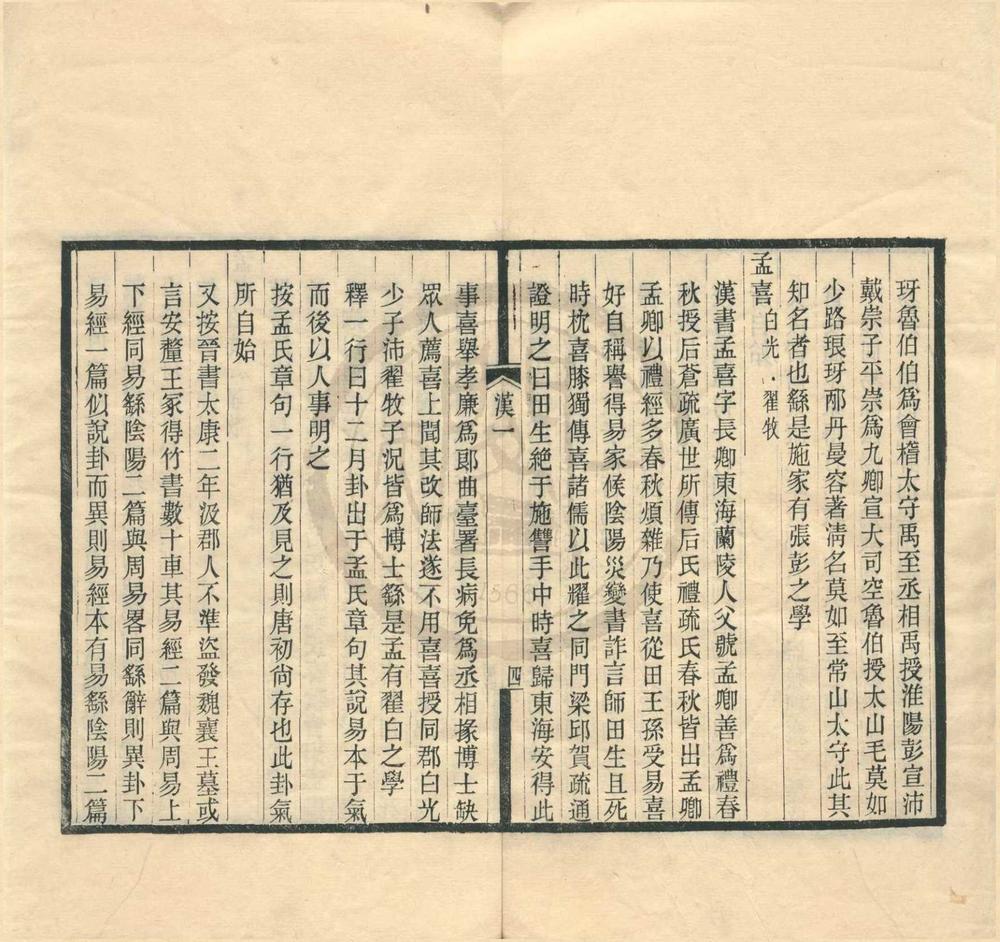 玡魯伯伯為會稽太守禹至丞相禹授淮陽彭宣沛
戴崇子平崇為九卿宣大司空魯伯授太山毛莫如
少路琅玡邴丹曼容著清名莫如至常山太守此其
知名者也繇是施家有張彭之學
孟喜 白光 翟牧
漢書孟喜字長卿東海蘭陵人父號孟卿善為禮春
秋授后蒼疏廣世所傳后氏禮疏氏春秋皆出孟卿
孟卿以禮經多春秋煩雜乃使喜從田王孫受易喜
好自稱譽得易家候陰陽災變書詐言師田生且死
時枕喜膝獨傳喜諸儒以此耀之同門梁邱賀疏通
證明之曰田生絕于施讐手中時喜歸東海安得此
漢一
四
事喜舉孝廉為郎曲臺署長病免為丞相掾博士缺
眾人薦喜上聞其改師法遂不用喜喜授同郡白光
少子沛翟牧子況皆為博士繇是孟有翟白之學
釋一行曰十二月卦出于孟氏章句其說易本于氣
而後以人事明之
按孟氏章句一行猶及見之則唐初尚存也此卦氣
所自始
又按晉書太康二年汲郡人不準盜發魏襄王墓或
言安釐王冢得竹書數十車其易經二篇與周易上
下經同易繇陰陽二篇與周易畧同繇辭則異卦下
易經一篇似說卦而異則易經本有易繇陰陽二篇